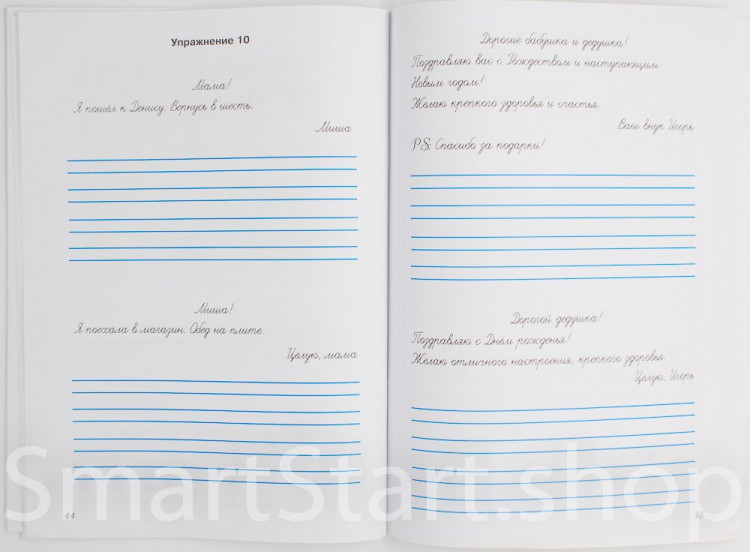 Упражнение 10
Мама!
Я пошёл к Денису. Вернусь в шесть.
Миша
Миша!
Я поехала в магазин. Обед на плите.
Целую, мама
44
Дорогие бабушка и дедушка!
Поздравляю вас с Рождеством и наступающим
Новым годом!
Желаю крепкого здоровья и счастья.
Ваш внук Игорь
P.S: Спасибо за подарки!
Дорогой дедушка!
Поздравляю с Днём рожденья!
Желаю отличного настроения, крепкого здоровья.
Целую, Игорь
SmartStart.shop